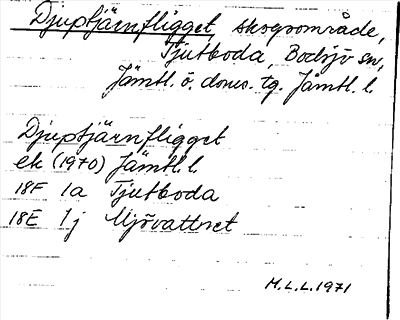 Djuptjärnfligget skogsområde,
Tjutboda, Bodsjö sn,
Jämtl. ö. doms. tg. Jämtl. l.
Djuptjärnfligget
ek (1970) Jämtl. l.
18F 1a Tjutboda
18E 1j Mjövattnet
M.L.L. 1971